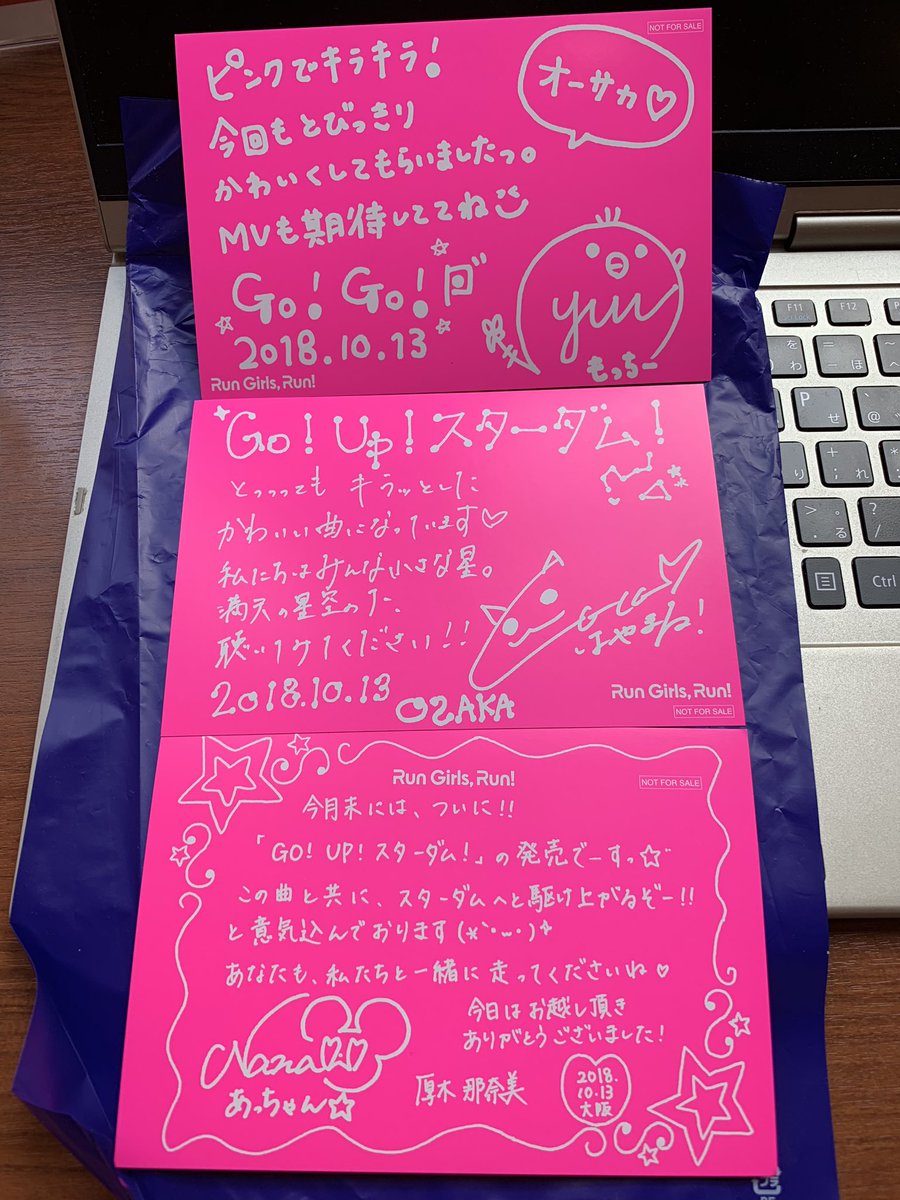 NOT FOR SALE
ピンクでキラキラ!
オーサカ♡
今回もとびっきり
かわいくしてもらいましたっ。
MVも期待しててね
Go! Go!
2018.10.13
yuu
もっちー
Run Girls, Run!
Go! Up! スターダム!
とっっっても キラッとした
かわいい曲になっています♡
私たちはみんな小さな星。
満天の星空の下、
聴いてみてください!!
はやまね!
2018.10.13
OSAKA
Run Girls, Run!
NOT FOR SALE
Run Girls, Run!
NOT FOR SALE
今月末には、ついに!!
「GO! UP! スターダム!」の発売でーすっ☆
この曲と共に、スターダムへと駆け上がるぞー!!
と意気込んでおります(*`・ω・)
あなたも、私たちと一緒に走ってくださいね♡
今日はお越し頂き
ありがとうございました!
Nana
あっちゃん☆
厚木 那奈美
2018.
10.13
大阪
F11
F12
Scr Lock
を
わ
=
ー ほ
へ
P
せ
@
り
+
;
れ
>
。
.
る
?
・
/
め
Ctrl